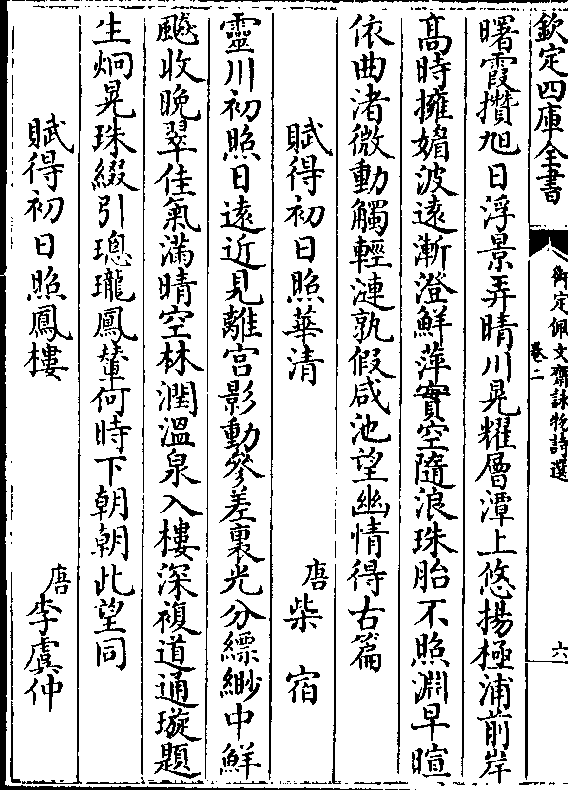 欽定四庫全書
御定佩文齋詠物詩選
卷二
六
曙霞攢旭日浮景弄晴川晃耀層潭上悠揚極浦前岸
高時擁媚波遠漸澄鮮萍實空隨浪珠胎不照淵早暄
依曲渚微動觸輕漣孰假咸池望幽情得古篇
賦得初日照華清 唐柴宿
靈川初照日遠近見離宮影動參差裏光分縹緲中鮮
飇收晚翠佳氣滿晴空林潤溫泉入樓深複道通璇題
生炯晃珠綴引璁瓏鳳輦何時下朝朝此望同
賦得初日照鳳樓 唐李虞仲